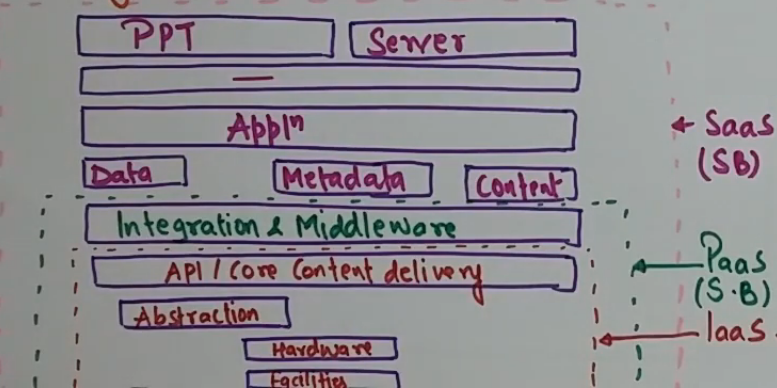 PPT Server
Appln
Data Metadata Content
Integration & Middleware
API / Core Content delivery
Abstraction
Hardware
Facilities
SaaS
(SB)
PaaS
(S.B)
IaaS